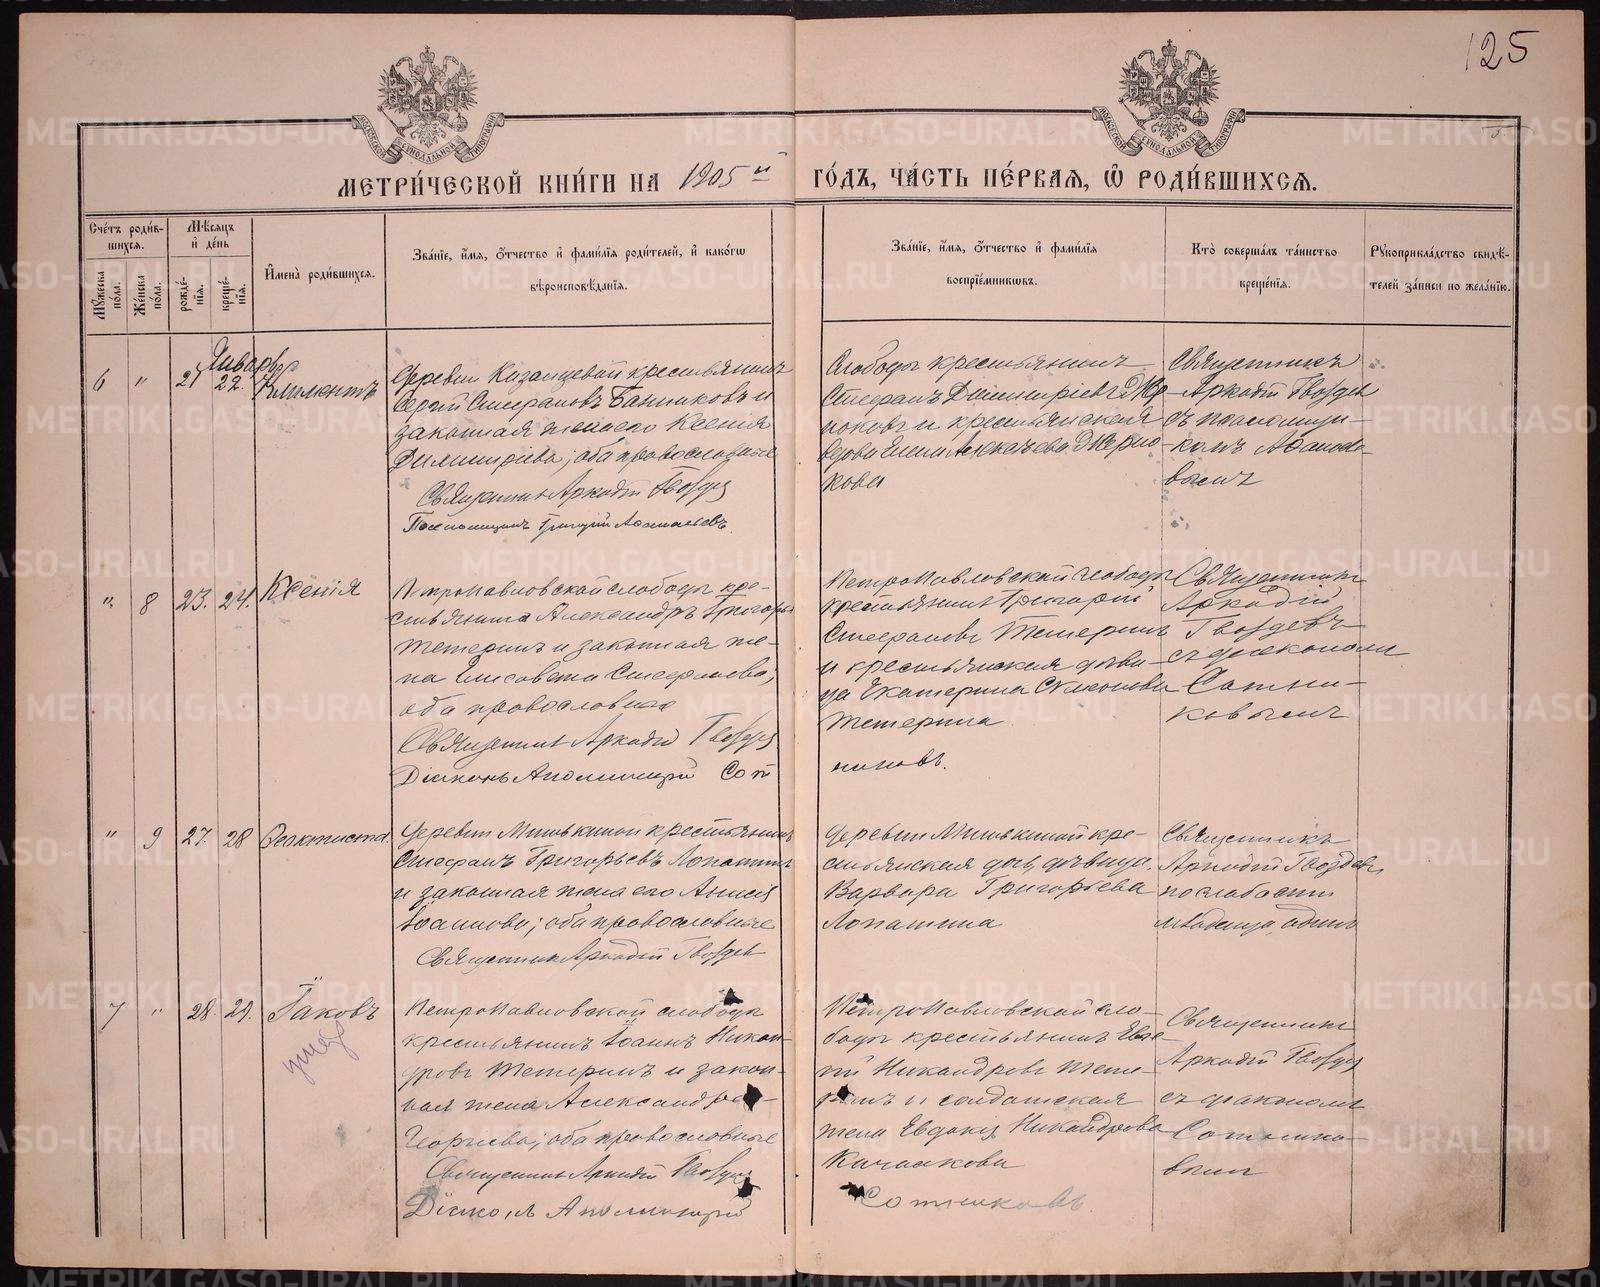 125
МЕТРИ́ЧЕСКОЙ КНИ́ГИ НА 1905 й ГО́ДЪ, ЧА́СТЬ ПЕ́РВАЯ, Ѡ РОДИ́ВШИХСЯ.
Сче́тъ роди́вшихся.
Му́жеска по́ла.
Же́нска по́ла.
Мѣ́сяцъ и де́нь
рожде́нїя.
креще́нїя.
И҆мена̀ роди́вшихся.
Зва́нїе, и҆́мя, ѻ҆́тчество и҆ фами́лїя роди́телей, и҆ како́гѡ
вѣроисповѣ́данїя.
Зва́нїе, и҆́мя, ѻ҆́тчество и҆ фами́лїя
воспрїе́мникѡвъ.
Кто̀ соверша́лъ та́инство
креще́нїя.
Рꙋкоприкла́дство свидѣ́-
телей за́писи по жела́нїю.
Январь
6 " 21 22. Климентъ
деревни Казанцевой крестьянинъ
Сергій Стефановъ Банниковъ и
законная жена его Ксенія
Димитріева; оба православные
Священникъ Аркадій Гвоздевъ
Псаломщикъ Григорій
Слободы крестьянинъ
Стефанъ Димитріевъ
и крестьянская
Священникъ
Аркадій Гвоздевъ
съ псаломщи-
комъ
" 8 23. 24. Ксенія
Петропавловской слободы кре-
стьянинъ Александръ Григорьевъ
Тетеринъ и законная же-
на Елисавета Стефанова;
оба православные
Священникъ Аркадій Гвоздевъ
Діаконъ Аполлинарій Сот
Петропавловской слободы
крестьянинъ Григорій
Стефановъ Тетеринъ
и крестьянская дѣви-
ца Екатерина
Тетерина
никовъ.
Священникъ
Аркадій
Гвоздевъ
съ діакономъ
Сотни-
ковымъ
" 9 27. 28 Феоктиста
деревни Мишкиной крестьянинъ
Стефанъ Григорьевъ Лопатинъ
и законная жена его Анисія
Іоаннова; оба православные
Священникъ Аркадій Гвоздевъ
деревни Мишкиной кре-
стьянская дочь, дѣвица
Варвара Григорьева
Лопатина
Священникъ
Аркадій Гвоздевъ
по слабости
младенца, одинъ
7 " 28. 29. Іаковъ
умеръ
Петропавловской слободы
крестьянинъ Іоаннъ Никан-
дровъ Тетеринъ и закон-
ная жена Александра
Георгіева; оба православные
Священникъ Аркадій Гвоздевъ
Діаконъ Аполлинарій
Петропавловской сло-
боды крестьянинъ Евге-
ній Никандровъ Тете-
ринъ и солдатская
жена Евдокія Никандрова
Качалкова
Сотниковъ.
Священникъ
Аркадій Гвоздевъ
съ діакономъ
Сотнико-
вымъ
METRIKI.GASO-URAL.RU